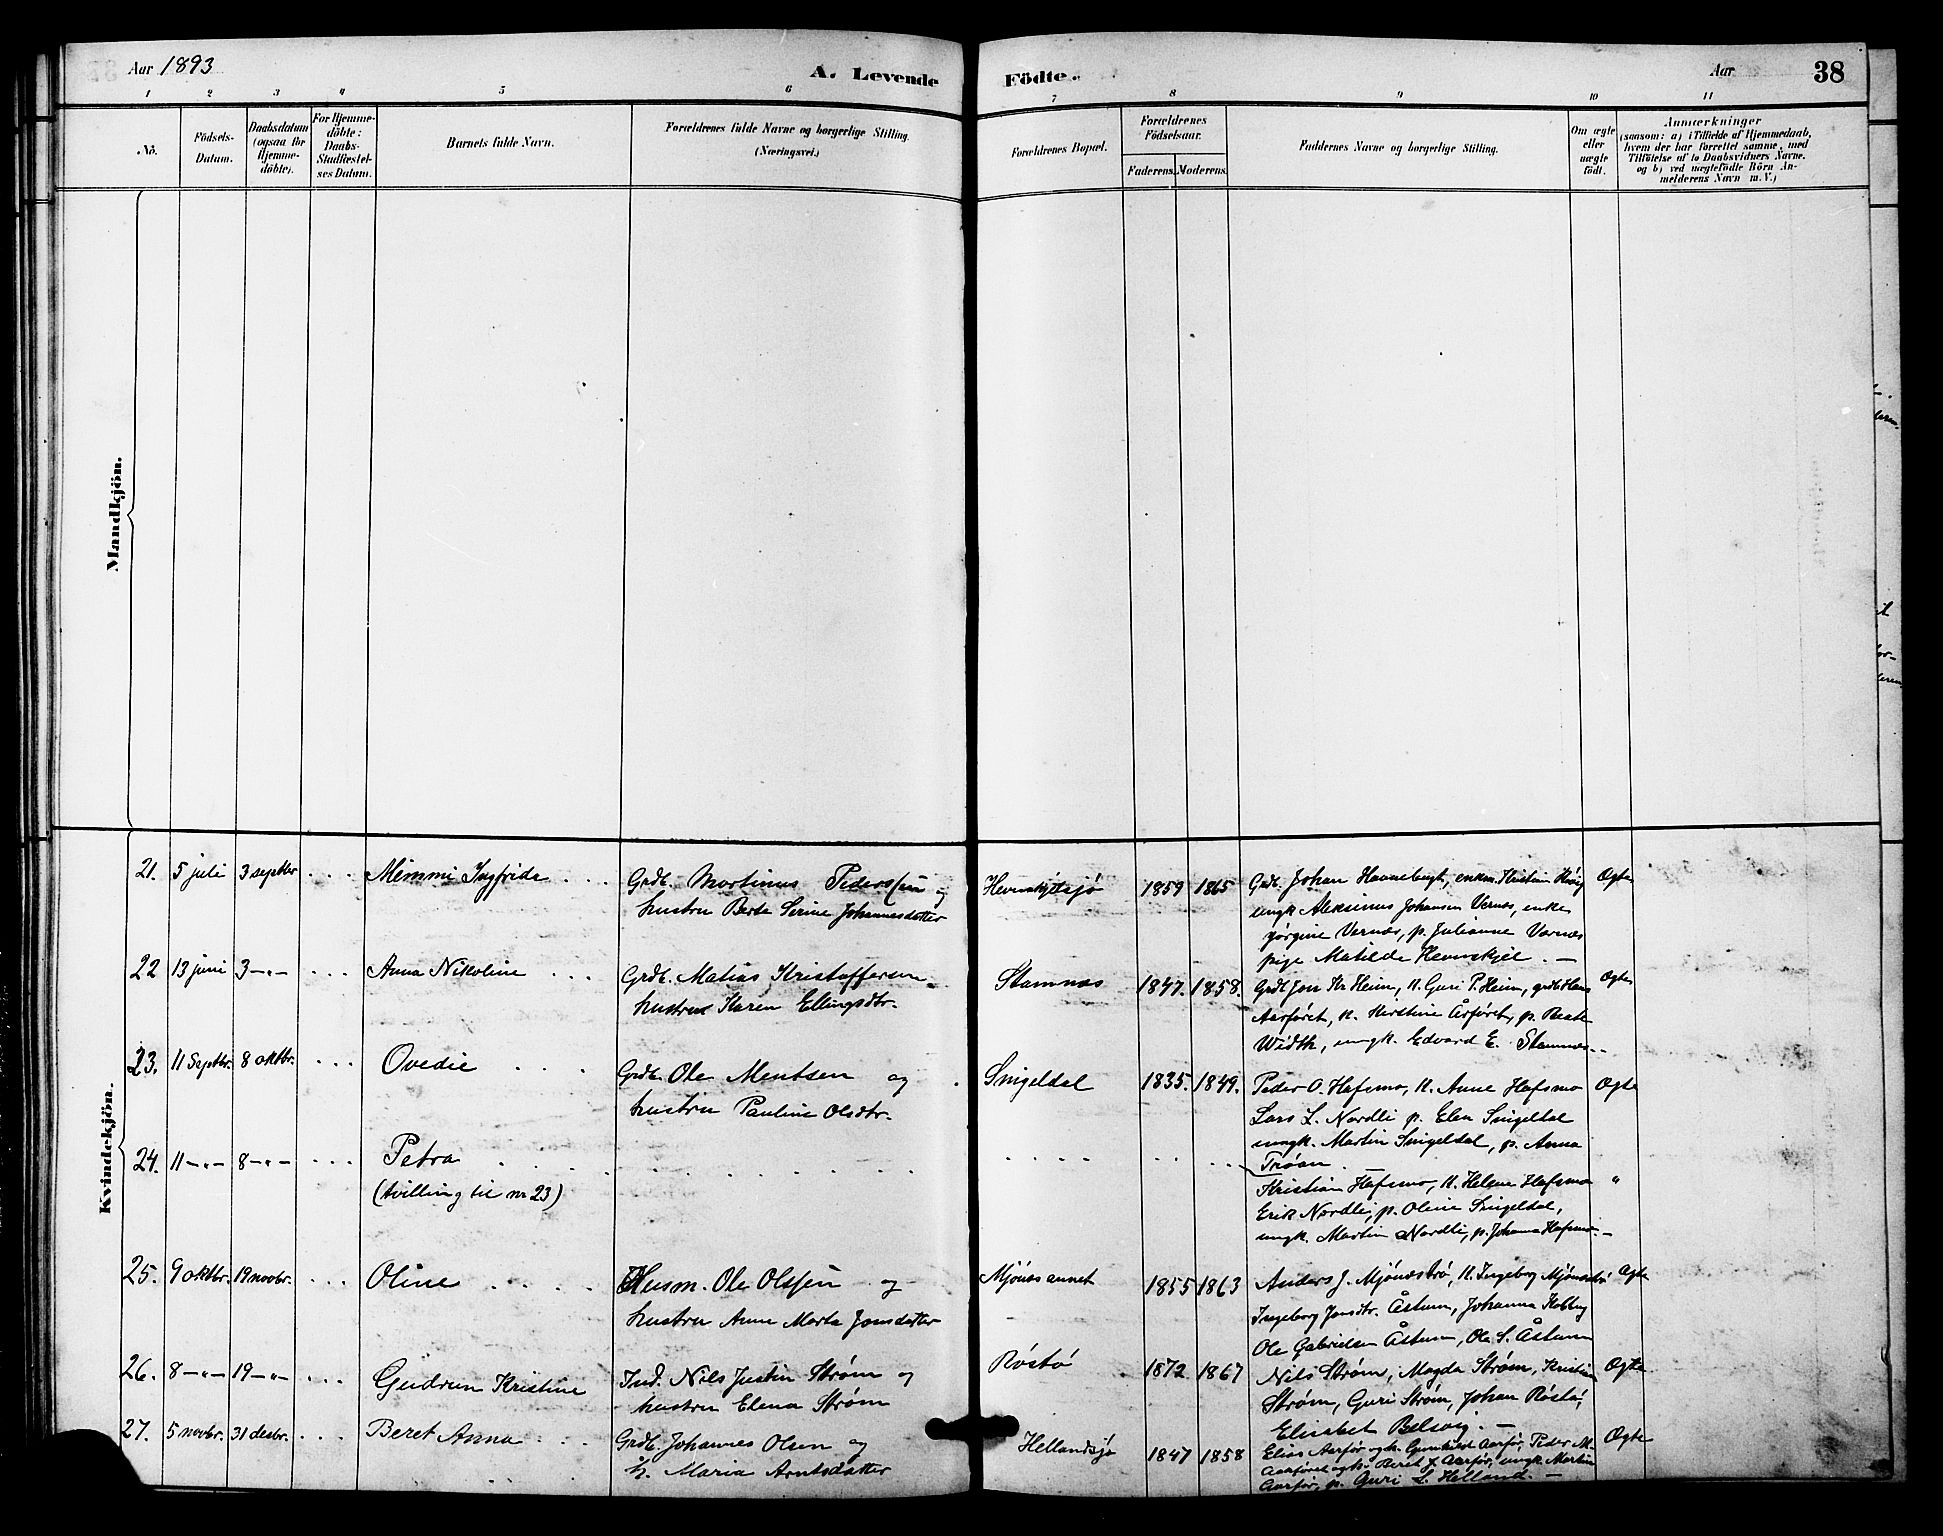 Aar 1893
A. Levende Födte.
Aar
38
1 2 3 4 5 6 7 8 9 10 11
No.
Födsels-
Datum.
Daabsdatum
(ogsaa for
Hjemme-
döbte).
For Hjemme-
döbte:
Daabs-
Stadfæstel-
ses Datum.
Barnets fulde Navn.
Forældrenes fulde Navne og borgerlige Stilling.
(Næringsvei.)
Forældrenes Bopæl.
Forældrenes
Födselsaar.
Faderens.
Moderens.
Faddernes Navne og borgerlige Stilling.
Om ægte
eller
uægte
födt.
Anmærkninger
(saasom: a) i Tilfælde af Hjemmedaab,
hvem der har forrettet samme, med
Tilföielse af to Daabsvidners Navne.
og b) ved uægtefödte Börn An-
melderens Navn m. V.)
Mandkjön.
Kvindekjön.
21. 5 juli 3 septbr Mimmi Ingfride
Grdb. Martinus Pederssen og
hustru Berte Serine Johannesdatter
Hevnskjelsjø 1859 1865
Grdb. Johan Havnebugt, enkem. Kristian
ungk Aleksinus Johansen Vernæs, enke
Jørgine Vernæs, p. Julianne Vernæs
pige Matilde Hevnskjel. —
Ægte
22 13 juni 3 -"- Anna Nikoline
Grdb. Matias Kristoffersen
hustru Karen Ellingsdtr.
Stamnæs 1847. 1858.
Grdb Jon Kr Heim, K. Guri P. Heim, grdb Hans
Aarføret, K. Kirstine Årføret, p. Beate
Width, ungk. Edvard E. Stamnæs.
Ægte
23. 11 Septbr. 8 oktbr. Ovedie
Grdb. Ole Mentsen og
hustru Pauline Olsdtr.
Snigeldal 1835. 1849.
Peder O. Hafsmo, K. Anne Hafsmo
Lars L. Nordli p. Elen Snigeldal
ungk. Martin Snigeldal, p. Anna
Trøan.
Ægte
24. 11 -"- 8 -"- Petra
(tvilling til nr 23)
Kristian Hafsmo, K. Helene Hafsmo
Erik Nordli, p. Oline Snigeldal,
ungk. Martin Nordli, p. Johanna Hafsmo. —
"
25. 9 oktbr. 19 novbr. Oline
Husm. Ole Olssen og
hustru Anne Marta Jonsdatter
Mjønesannet 1855 1863
Anders J. Mjønestrø, K. Ingeborg Mjønestrø
Ingeborg Jonsdtr. Åstum, Johanna
Ole Gabrielsen Åstum, Ole S. Åstum
Ægte
26. 8 -"- 19 -"- Gudrun Kristine
Ind. Nils Justin Strøm og
hustru Elena Strøm
Røstø 1872 1867
Nils Strøm, Magda Strøm, Kristian
Strøm, Guri Strøm, Johan Røstø,
Elisabet Belsvig. —
Ægte
27. 5 novbr. 31 desbr. Beret Anna
Grdb. Johannes Olsen og
h. Maria Arntsdatter
Hellandsjø 1847 1858
Elias Aarfør og k. Gunhild Aarfør, Peder M.
Aarføret og k. Beret J. Aarfør, ungk. Martin
Aarfør, p. Guri L. Helland. —
Ægte